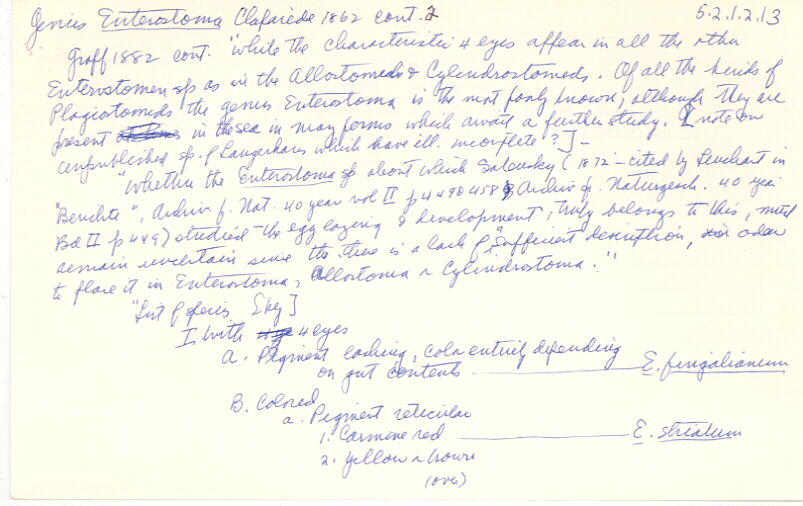 Genus Enterostoma Claparède 1862 cont. 2 5.2.1.2.13
Graff 1882 cont. "while the characteristic 4 eyes appear in all the other
Enterostomen sp as in the Allostomeds & Cylindrostomeds. Of all the kinds of
Plagiostomids the genus Enterostoma is the most poorly known, although they are
present in the sea in many forms which await a further study. [note on
unpublished sp. of Langerhans which have ill. incomplete?] -
"Whether the Enterostoma sp about which Salensky (1872 - cited by Leuckart in
"Berichte", Archiv f. Nat. 40 year vol II p 449 458 Archiv f. Naturgesch. 40 year
Bd II p 449) studied the egg laying & development, truly belongs to this, must
remain uncertain since the there is a lack of "sufficient description, in order
to place it in Enterostoma, Allostoma or Cylindrostoma."
"List of species [key]
I. With 4 eyes
A. Pigment lacking, color entirely depending
on gut contents E. fingalianum
B. Colored
a. Pigment reticular
1. Carmine red E. striatum
2. Yellow or brown
(over)